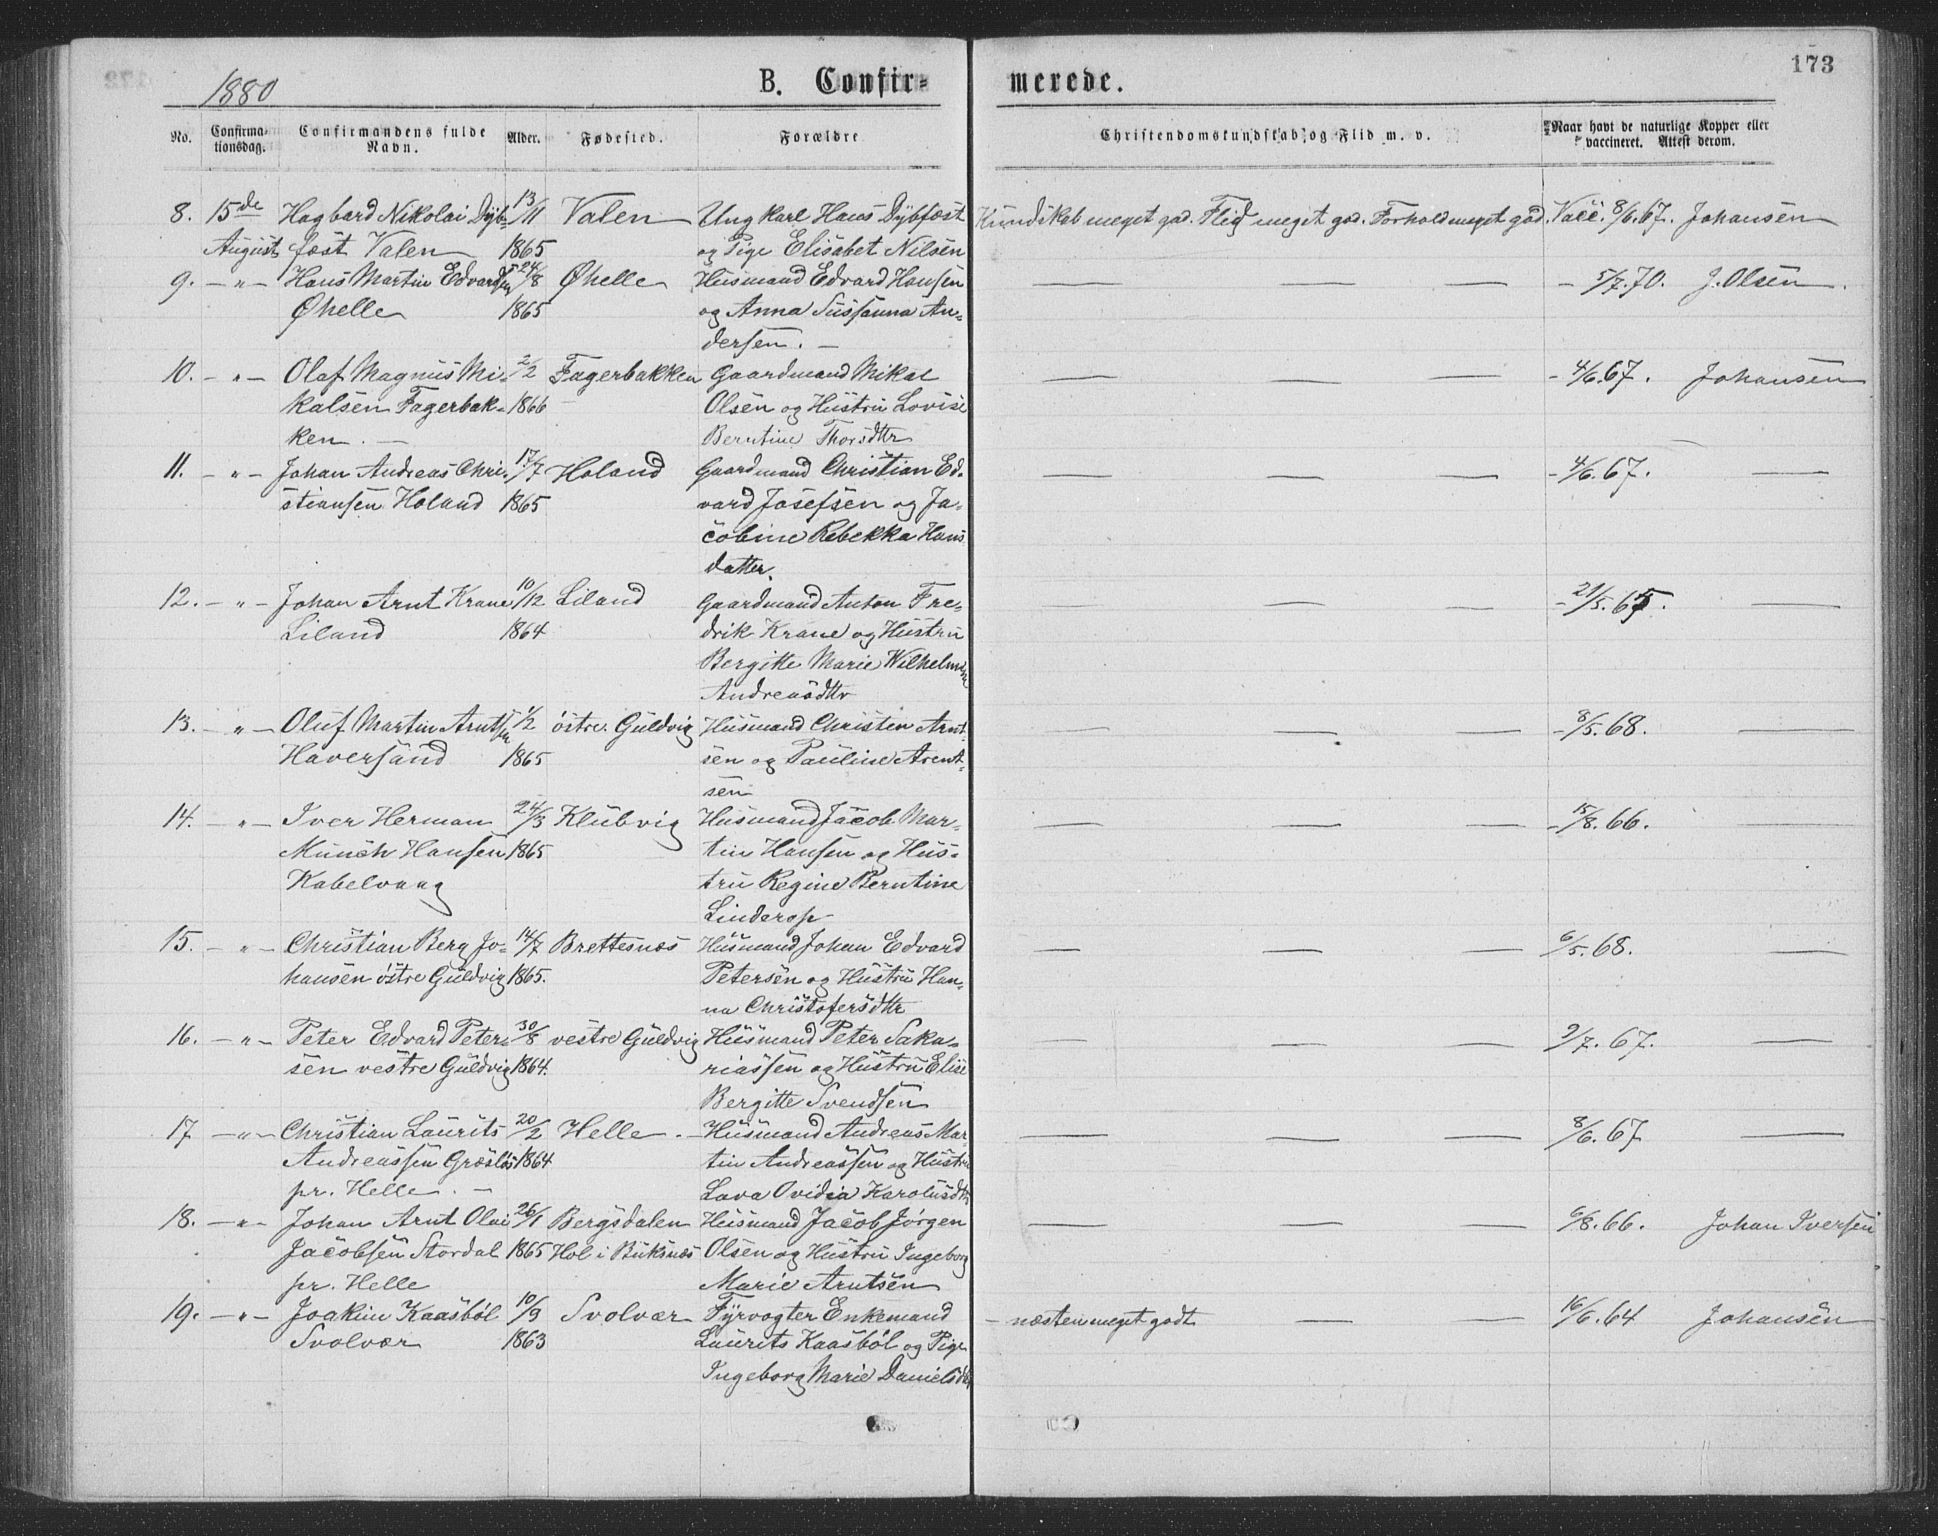 1880
B. Confir-
merede.
173
No.
Confirma-
tionsdag.
Confirmandens fulde
Navn.
Alder.
Fødested.
Forældre
Christendomskundskab og Flid m. v.
Naar havt de naturlige Kopper eller
vaccineret. Attest derom.
8. 15de Hagbard Nikolai Dyb- 13/11 Valen Ungkarl Hans Dybfæst Kundskab meget god. Flid meget god. Forhold meget god. Vacc. 8/6.67. Johansen
August fæst Valen 1865 og Pige Elisabet Nilsen
9. — " — Hans Martin Edvardsen 24/8 Øhelle Husmand Edvard Hansen — — — - 5/7.70. J. Olsen
Øhelle 1865 og Anna Sussanna An-
dersen. —
10. — " — Olaf Magnus Mi- 2/2 Fagerbakken Gaardmand Mikal — — — - 4/6.67. Johansen
kalsen Fagerbak- 1866 Olsen og Hustru Lovise
ken. — Berntine Thorsdtr
11. — " — Johan Andreas Chri- 17/7 Holand Gaardmand Christian Ed- — — — - 4/6.67. —
stiansen Holand 1865 vard Josefsen og Ja-
cobine Rebekka Hans
datter.
12. — " — Johan Arnt Krane 10/12 Liland Gaardmand Anton Fre- — — — - 21/5.65. —
Liland 1864 drik Krane og Hustru
Bergitte Marie Wilhelmine
Andreasdtr
13. — " — Oluf Martin Arntsen 1/2 østre Guldvig Husmand Christen Arnt- — — — - 8/5.68. —
Haversand 1865 sen og Pauline Arent-
sen
14. — " — Iver Herman 24/3 Klubvig Husmand Jacob Mar- — — — - 15/8.66. —
Munch Hansen 1865 tin Hansen og Hus-
Kabelvaag tru Regine Berntine
15. — " — Christian Berg Jo- 14/7 Brettesnæs Husmand Johan Edvard — — — 6/5.68. —
hansen østre Guldvig 1865. Petersen og Hustru Han-
na Christofersdtr
16. — " — Peter Edvard Peter- 30/8 vestre Guldvig Husmand Peter Saka- — — — 2/7.67. —
sen vestre Guldvig 1864. riassen og Hustru Elise
Bergitte Svendsen
17 — " — Christian Laurits 20/2 Helle. — Husmand Andreas Mar- — — — 8/6.67 —
Andreassen Græsløs 1864 tin Andreassen og Hustru
pr. Helle. — Lava Ovidia Karolusdtr
18. — " — Johan Arnt Olai 26/1 Bergsdalen Husmand Jacob Jørgen — — — 6/8.66. Johan Iversen
Jacobsen Stordal 1865 Hol i Buksnæs Olsen og Hustru Ingeborg
pr. Helle Marie Arntsen
19. — " — Joakim Kaasbøl 10/9 Svolvær Fyrvogter Enkemand — næsten meget godt — — 16/6.64 Johansen
Svolvær 1863 Laurits Kaasbøl og Pige
Ingeborg Marie Danielsdtr